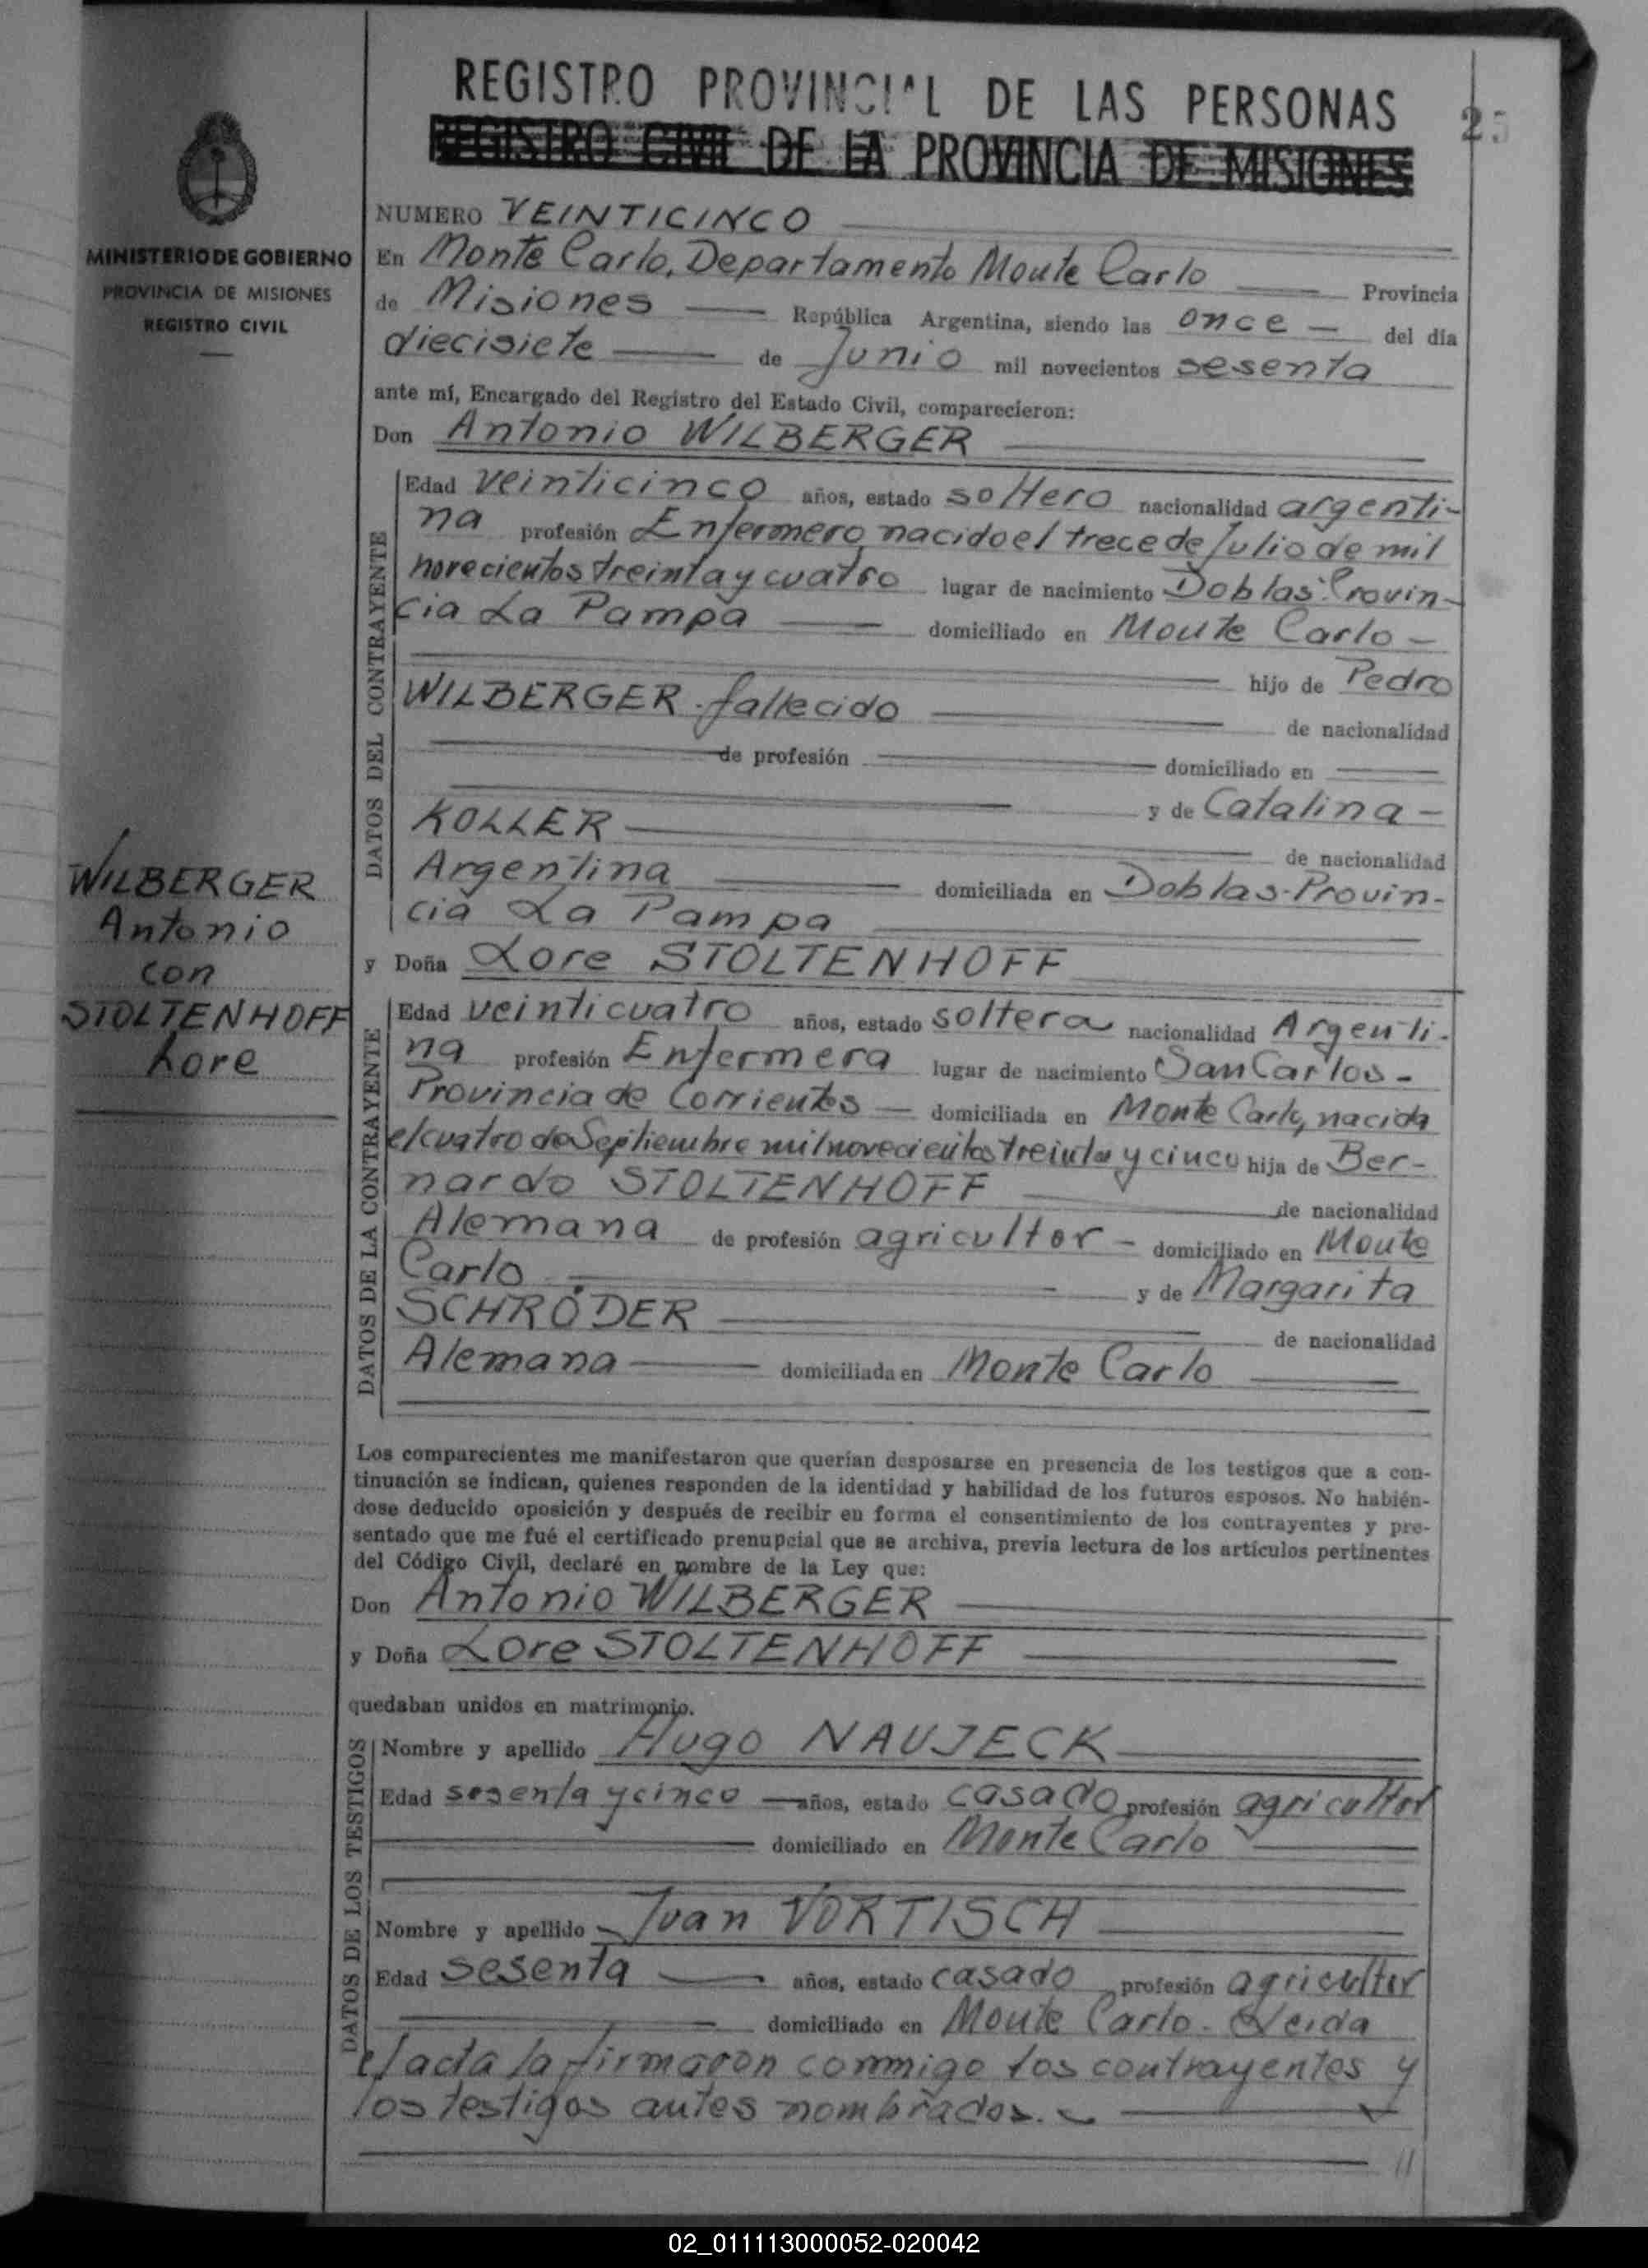 REGISTRO PROVINCIAL DE LAS PERSONAS
REGISTRO CIVIL DE LA PROVINCIA DE MISIONES
25
MINISTERIO DE GOBIERNO
PROVINCIA DE MISIONES
REGISTRO CIVIL
WILBERGER
Antonio
con
STOLTENHOFF
Lore
NUMERO VEINTICINCO
En Monte Carlo, Departamento Monte Carlo Provincia
de Misiones República Argentina, siendo las once del día
diecisiete de Junio mil novecientos sesenta
ante mí, Encargado del Registro del Estado Civil, comparecieron:
Don Antonio WILBERGER
DATOS DEL CONTRAYENTE
Edad veinticinco años, estado soltero nacionalidad argenti-
na profesión Enfermero nacido el trece de Julio de mil
novecientos treinta y cuatro lugar de nacimiento Doblas-Provin-
cia La Pampa domiciliado en Monte Carlo -
hijo de Pedro
WILBERGER - fallecido de nacionalidad
de profesión domiciliado en
y de Catalina -
KOLLER de nacionalidad
Argentina domiciliada en Doblas-Provin-
cia La Pampa
y Doña Lore STOLTENHOFF
DATOS DE LA CONTRAYENTE
Edad veinticuatro años, estado soltera nacionalidad Argenti-
na profesión Enfermera lugar de nacimiento San Carlos -
Provincia de Corrientes - domiciliada en Monte Carlo, nacida
el cuatro de Septiembre mil novecientos treinta y cinco hija de Ber-
nardo STOLTENHOFF de nacionalidad
Alemana de profesión agricultor - domiciliado en Monte
Carlo y de Margarita
SCHRÖDER de nacionalidad
Alemana domiciliada en Monte Carlo
Los comparecientes me manifestaron que querían desposarse en presencia de los testigos que a con-
tinuación se indican, quienes responden de la identidad y habilidad de los futuros esposos. No habién-
dose deducido oposición y después de recibir en forma el consentimiento de los contrayentes y pre-
sentado que me fué el certificado prenupcial que se archiva, previa lectura de los artículos pertinentes
del Código Civil, declaré en nombre de la Ley que:
Don Antonio WILBERGER
y Doña Lore STOLTENHOFF
quedaban unidos en matrimonio.
DATOS DE LOS TESTIGOS
Nombre y apellido Hugo NAUJECK
Edad sesenta y cinco años, estado casado profesión agricultor
domiciliado en Monte Carlo
Nombre y apellido Juan VORTISCH
Edad sesenta años, estado casado profesión agricultor
domiciliado en Monte Carlo. Leida
el acta la firmaron conmigo los contrayentes y
los testigos antes nombrados.
02_011113000052-020042